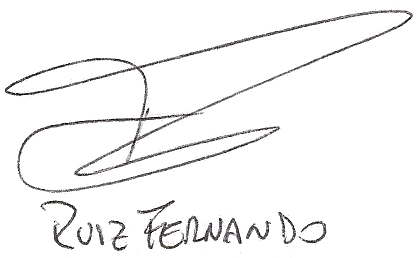 RUIZ FERNANDO